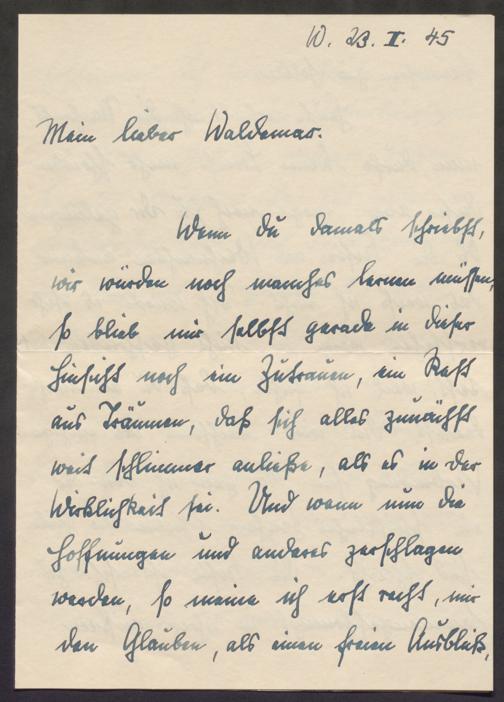 W. 23. I. 45
Mein lieber Waldemar.
Wenn du damals schriebst,
wir würden noch manches lernen müssen,
so blieb mir selbst gerade in dieser
Hinsicht noch ein Zutrauen, ein Rest
aus Träumen, daß sich alles zunächst
weit schlimmer anließe, als es in der
Wirklichkeit sei. Und wenn nun die
Hoffnungen und anderes zerschlagen
werden, so meine ich erst recht, mir
den Glauben, als einen freien Ausblick,